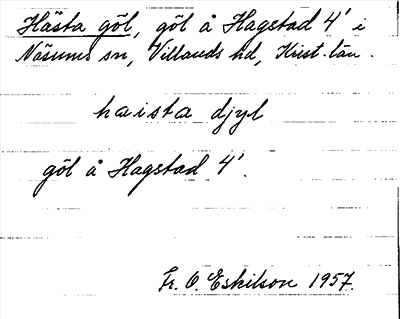 Hästa göl, göl å Hagstad 4' i
Näsums sn, Villands hd, Krist. län.
haista djyl
göl å Hagstad 4'.
Fr. O. Eskilson 1957.